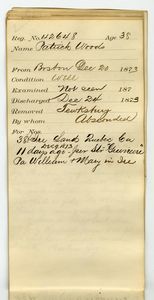 Reg. No. 42648 Age 38
Name Patrick Woods
From Boston Dec 20 1873
Condition Well
Examined Not seen 187
Discharged Dec 24 1873
Removed Tewksbury
By whom Absconded
For Nos.
38 Ire Land Quebec Ca
11 days ago per St.
Pa William & Mary in Ire